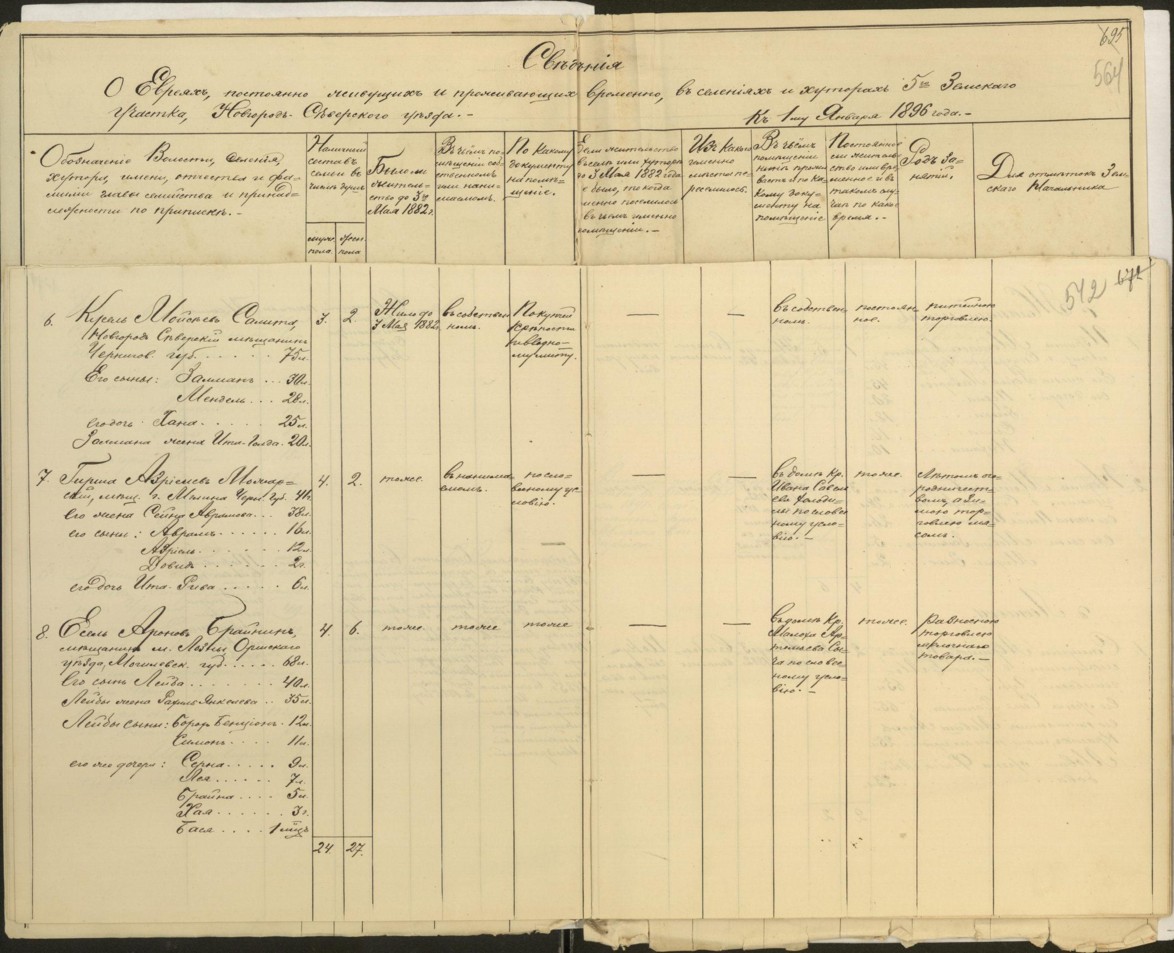 695
564
Свѣдѣнія
О Евреяхъ, постоянно живущихъ и проживающихъ временно, въ селеніяхъ и хуторахъ 5го Земскаго
участка, Новгородъ-Сѣверскаго уѣзда.-
Къ 1му Января 1896 года.-
Обозначеніе Волости, селенія,
хутора, имени, отчества и фа-
миліи главы семейства и принад-
лежности по припискѣ.-
Наличный
составъ
семьи въ
числѣ душъ
мужс.
пола.
женс.
пола
Было ли
житель-
ство до 3го
Мая 1882 г.
Въ чьемъ по-
мѣщеніи соб-
ственномъ
или нани-
маемомъ.
По какому
документу
на помѣ-
щеніе.
Если жительство
въ селѣ или хуторѣ
до 3 Мая 1882 года
не было, то когда
именно поселился
въ чьемъ именно
помѣщеніи.-
Изъ какого
именно
мѣста пе-
реселился.
Въ чьемъ
помѣщеніи
нынѣ прожи-
ваетъ и по ка-
кому доку-
менту на
помѣщеніе
Постоянное
ли житель-
ство имѣетъ
именно и въ
такомъ слу-
чаѣ по какое
время.-
Родъ за-
нятій.
Для отмѣтокъ Зем-
скаго Начальника
542
6. Мойсѣевъ
Новгородъ Сѣверскій мѣщанинъ
Чернигов. губ. . . . . . 75 л.
Его сыны: Залманъ . . . 30 л.
Мендель . . . 28 л.
его дочь Хана . . . . . 25 л.
Залмана жена Ита-Голда. 20 л.
3. 2
Жилъ до
3 Мая 1882 г.
въ собствен-
номъ.
По купчей
крѣпости
и вводно-
му листу.
— —
въ собствен-
номъ.
постоян-
ное.
питейною
торговлею.
7. Гирша Азріелевъ
мѣщ. г. Мглина Черн. Губ.
его жена Сейна Абрамова . . 38 л.
его сыны: Абрамъ . . . . . . 16 л.
Азріель . . . . . . 12 л.
Довидъ . . . . . . 2 г.
его дочь Ита-Рива . . . . . 6 л.
4. 2.
тоже.
въ нанима-
емомъ.
по сло-
весному ус-
ловію.
—
— —
въ домѣ кр.
Ивана
по словес-
ному усло-
вію.-
тоже.
Лѣтомъ
а зи-
мою тор-
говлею мя-
сомъ.
8. Есель Ароновъ Брайнинъ,
мѣщанинъ м. Лезны Оршскаго
уѣзда, Могилевск. губ. . . . . 68 л.
Его сынъ Лейба . . . . . . 40 л.
Лейбы жена Рахиль Янкелева . . 35 л.
Лейбы сыны: Борохъ Бенціонъ . 12 л.
Симонъ . . . . 11 л.
его же дочери: Серна . . . . . 9 л.
Лея . . . . . . 7 л.
Брайна . . . . 5 л.
Хая . . . . . . 3 г.
Бася . . . . 1 мѣсц.
4. 6.
тоже.
тоже
тоже
— —
въ домѣ кр.
Малоха Ар-
темьева
по словес-
ному усло-
вію.-
тоже.
разносною
торговлею
мелочнаго
товара.-
24. 27.